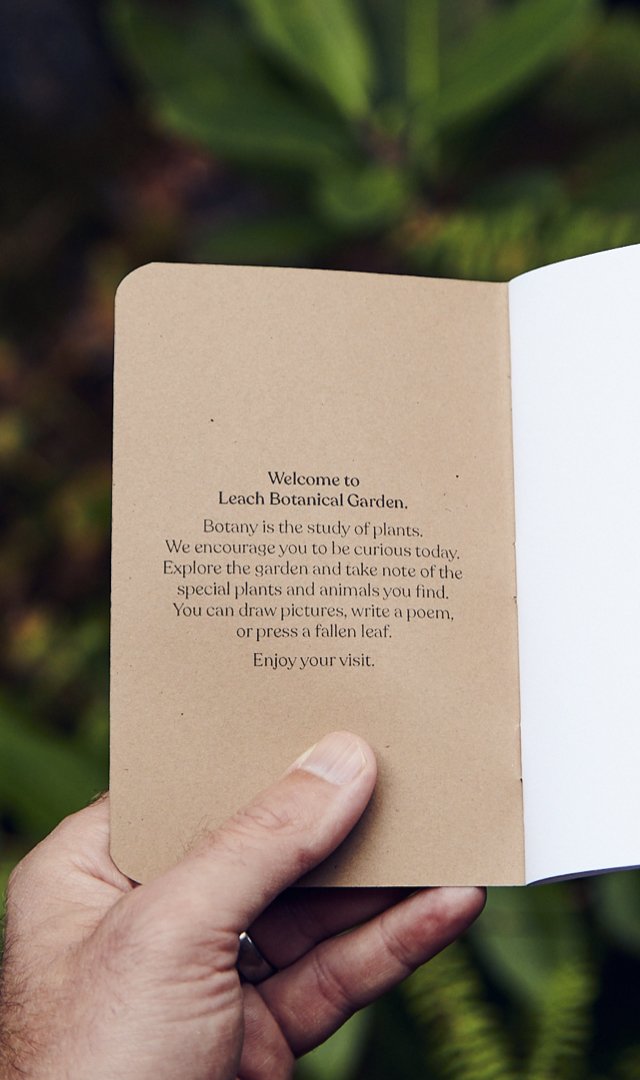 Welcome to
Leach Botanical Garden.
Botany is the study of plants.
We encourage you to be curious today.
Explore the garden and take note of the
special plants and animals you find.
You can draw pictures, write a poem,
or press a fallen leaf.
Enjoy your visit.